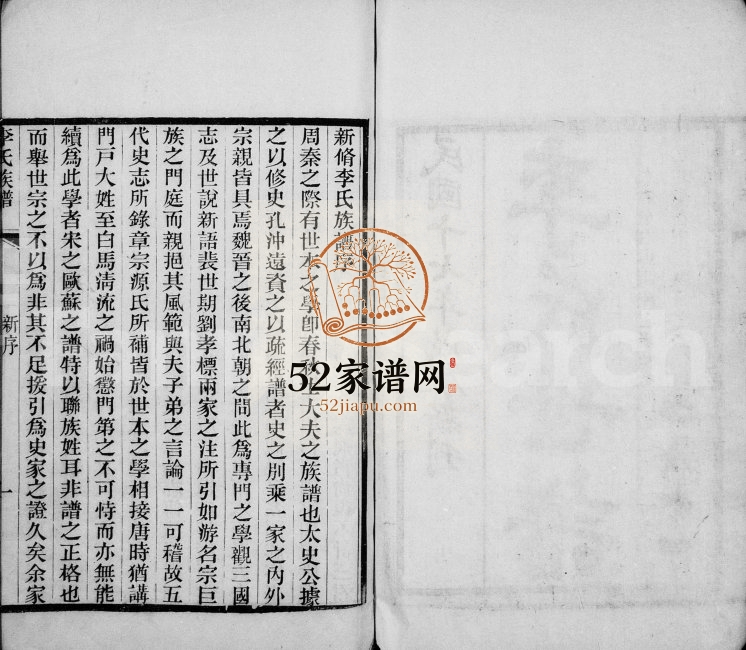 新脩李氏族譜序
周秦之際有世本之學卽春秋士大夫之族譜也太史公據
之以修史孔沖遠資之以疏經譜者史之別乘一家之內外
宗親皆具焉魏晉之後南北朝之間此爲專門之學觀三國
志及世說新語裴世期劉孝標兩家之注所引如游名宗巨
族之門庭而親挹其風範與夫子弟之言論一一可稽故五
代史志所錄章宗源氏所補皆於世本之學相接唐時猶講
門戶大姓至白馬清流之禍始懲門第之不可恃而亦無能
續爲此學者宋之歐蘇之譜特以聯族姓耳非譜之正格也
而舉世宗之不以爲非其不足援引爲史家之證久矣余家
李氏族譜
新序
一
52家谱网
52jiapu.com